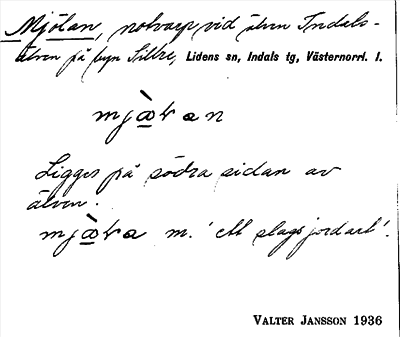 Mjölan, notvarp vid älven Indals-
älven på byn Sillre, Lidens sn, Indals tg, Västernorrl. l.
mjœ̀ɽan
Ligger på södra sidan av
älven.
mjœ̀ɽa m. 'ett slags jordart'.
VALTER JANSSON 1936